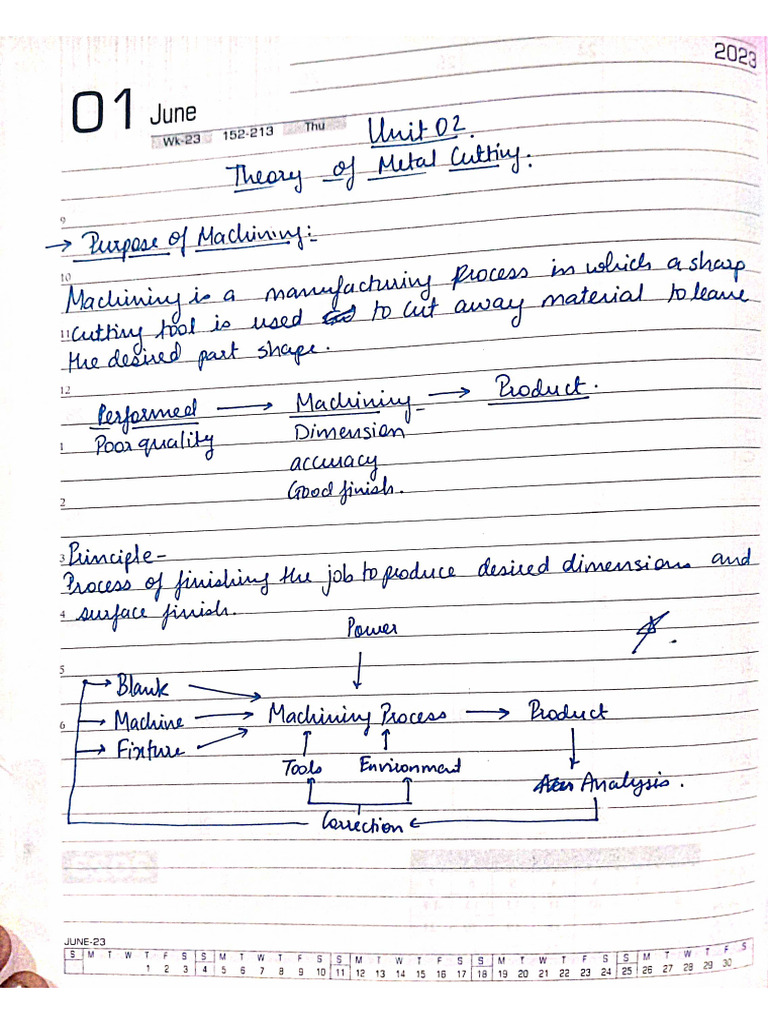 2023
01 June
Wk-23 152-213 Thu
Unit 02.
Theory of Metal Cutting:
9
→ Purpose of Machining:
10
Machining is a manufacturing process in which a sharp
11 cutting tool is used to cut away material to leave
the desired part shape.
12
Performed → Machining → Product.
1 Poor quality Dimension
accuracy
2 Good finish.
3 Principle-
Process of finishing the job to produce desired dimensions and
4 surface finish.
Power
5
Blank
6 Machine → Machining Process → Product
Fixture
Tools Environment
Analysis.
Correction
JUNE-23
S M T W T F S S M T W T F S S M T W T F S S M T W T F S S M T W T F S
1 2 3 4 5 6 7 8 9 10 11 12 13 14 15 16 17 18 19 20 21 22 23 24 25 26 27 28 29 30